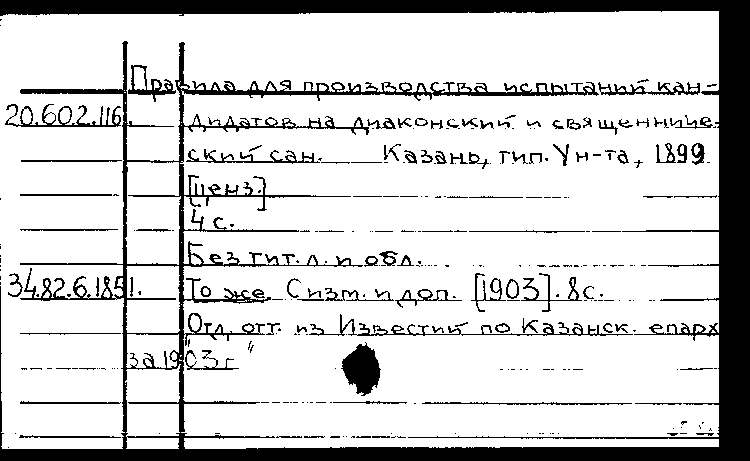 Правила для производства испытаний кан-
20.602.116. дидатов на диаконский и священниче-
ский сан. Казань, тип. Ун-та, 1899
[ценз.]
4 с.
Без тит. л. и обл.
34.82.6.1851. То же. С изм. и доп. [1903]. 8с.
Отд. отт. из "Известий по Казанск. епарх
за 1903 г"